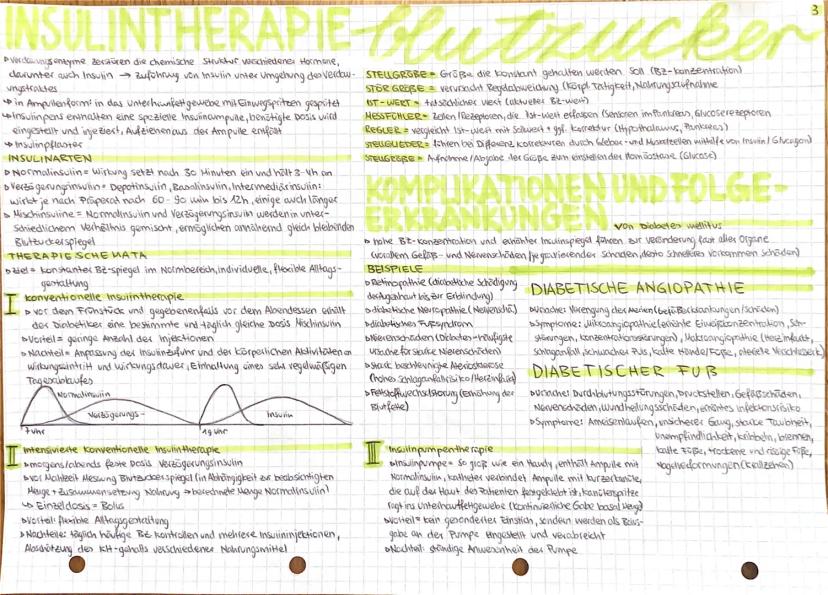 3
INSULINTHERAPIE
▷ Verdauungsenzyme zerstören die chemische Struktur verschiedener Hormone,
darunter auch Insulin → Zuführung von Insulin unter Umgehung des Verdau-
ungstraktes
↳ in Ampullenform in das Unterhautfettgewebe mit Einwegspritzen gespritzt
↳ Insulinpens enthalten eine spezielle Insulinampulle, benötigte Dosis wird
eingestellt und injeziert, Aufziehen aus der Ampulle entfällt
↳ Insulinpflaster
INSULINARTEN
▷ Normalinsulin = Wirkung setzt nach 30 Minuten ein und hält 3-4h an
▷ Verzögerungsinsulin = Depotinsulin, Basalinsulin, Intermediärinsulin:
wirkt je nach Präparat nach 60-90 min bis 12h, einige auch länger
▷ Mischinsuline = Normalinsulin und Verzögerungsinsulin werden in unter-
schiedlichem Verhältnis gemischt, ermöglichen annähernd gleich bleibenden
Blutzuckerspiegel
THERAPIESCHEMATA
▷ Ziel = konstanter BZ-spiegel im Normbereich, individuelle, flexible Alltags-
gestaltung
I konventionelle Insulintherapie
▷ vor dem Frühstück und gegebenenfalls vor dem Abendessen erhält
der Diabetiker eine bestimmte und täglich gleiche Dosis Mischinsulin
▷ Vorteil = geringe Anzahl der Injektionen
▷ Nachteil = Anpassung der Insulinzufuhr und der körperlichen Aktivitäten an
Wirkungseintritt und Wirkungsdauer, Einhaltung eines sehr regelmäßigen
Tagesablaufes
Normalinsulin
Verzögerungs-
Insulin
7 Uhr
19 Uhr
II Intensivierte konventionelle Insulintherapie
▷ morgens/abends feste Dosis Verzögerungsinsulin
▷ vor Mahlzeit Messung Blutzuckerspiegel (in Abhängigkeit zur beabsichtigten
Menge + Zusammensetzung Nahrung → berechnete Menge Normalinsulin)
↳ Einzeldosis = Bolus
▷ Vorteil: flexible Alltagsgestaltung
▷ Nachteile: täglich häufige BZ Kontrollen und mehrere Insulininjektionen,
Abschätzung des KH-gehalts verschiedener Nahrungsmittel
blutzucker
STELLGRÖßE = Größe die konstant gehalten werden soll (BZ-konzentration)
STÖRGRÖßE = verursacht Regelabweichung (körpl. Tätigkeit, Nahrungsaufnahme
IST-WERT = tatsächlicher Wert (aktueller BZ-wert)
MESSFÜHLER = Zellen/Rezeptoren, die Ist-wert erfassen (Sensoren im Pankreas, Glucoserezeptoren
REGLER = vergleicht Ist-wert mit Sollwert + ggf. Korrektur (Hypothalamus, Pankreas)
STELLGLIEDER = führen bei Differenz Korrekturen durch (Leber- und Muskelzellen mithilfe von Insulin/Glucagon)
STELLGRÖßE = Aufnahme/Abgabe der Größe zum einstellen der Homöostase (Glucose)
KOMPLIKATIONEN UND FOLGE-
ERKRANKUNGEN von Diabetes mellitus
▷ hohe BZ-konzentration und erhöhter Insulinspiegel führen zur Veränderung fast aller Organe
(vorallem Gefäß- und Nervenschäden / je gravierender Schäden, desto schnelleres Vorkommen schäden)
BEISPIELE
▷ Retinopathie (diabetische Schädigung
der Augenhaut bis zur Erblindung)
▷ diabetische Neuropathie (Nervenschä.)
▷ diabetisches Fußsyndrom
▷ Nierenschäden (Diabetes = häufigste
Ursache für starke Nierenschäden)
▷ stark beschleunigte Atherosklerose
(hohes Schlaganfallrisiko/Herzinfarkt)
▷ Fettstoffwechselstörung (Erhöhung der
Blutfette)
DIABETISCHE ANGIOPATHIE
▷ Ursache: Verengung der Arterien (Gefäßerkrankungen/schäden)
▷ Symptome: Mikroangiopathie (erhöhte Eiweißkonzentration, Seh-
störungen, konzentrationsstörungen), Makroangiopathie (Herzinfarkt,
Schlaganfall, schwacher Puls, kalte Hände/Füße, arterielle Verschlussk.)
DIABETISCHER FUß
▷ Ursache: Durchblutungsstörungen, Druckstellen, Gefäßschäden,
Nervenschäden, Wundheilungsschäden, erhöhtes Infektionsrisiko
▷ Symptome: Ameisenlaufen, unsicherer Gang, starke Taubheit,
unempfindlichkeit, kribbeln, brennen,
kalte Füße, trockene und rissige Füße,
Nagelverformungen (Krallzehen)
III Insulinpumpentherapie
▷ Insulinpumpe = so groß wie ein Handy, enthält Ampulle mit
Normalinsulin, Katheter verbindet Ampulle mit kurzer Kanüle,
die auf der Haut des Patienten festgeklebt ist, Kanülenspitze
ragt ins Unterhautfettgewebe (kontinuierliche Gabe basal Menge)
▷ Vorteil = kein gesonderter Einstich, sondern werden als Bolus-
gabe an der Pumpe eingestellt und verabreicht
▷ Nachteil: ständige Anwesenheit der Pumpe